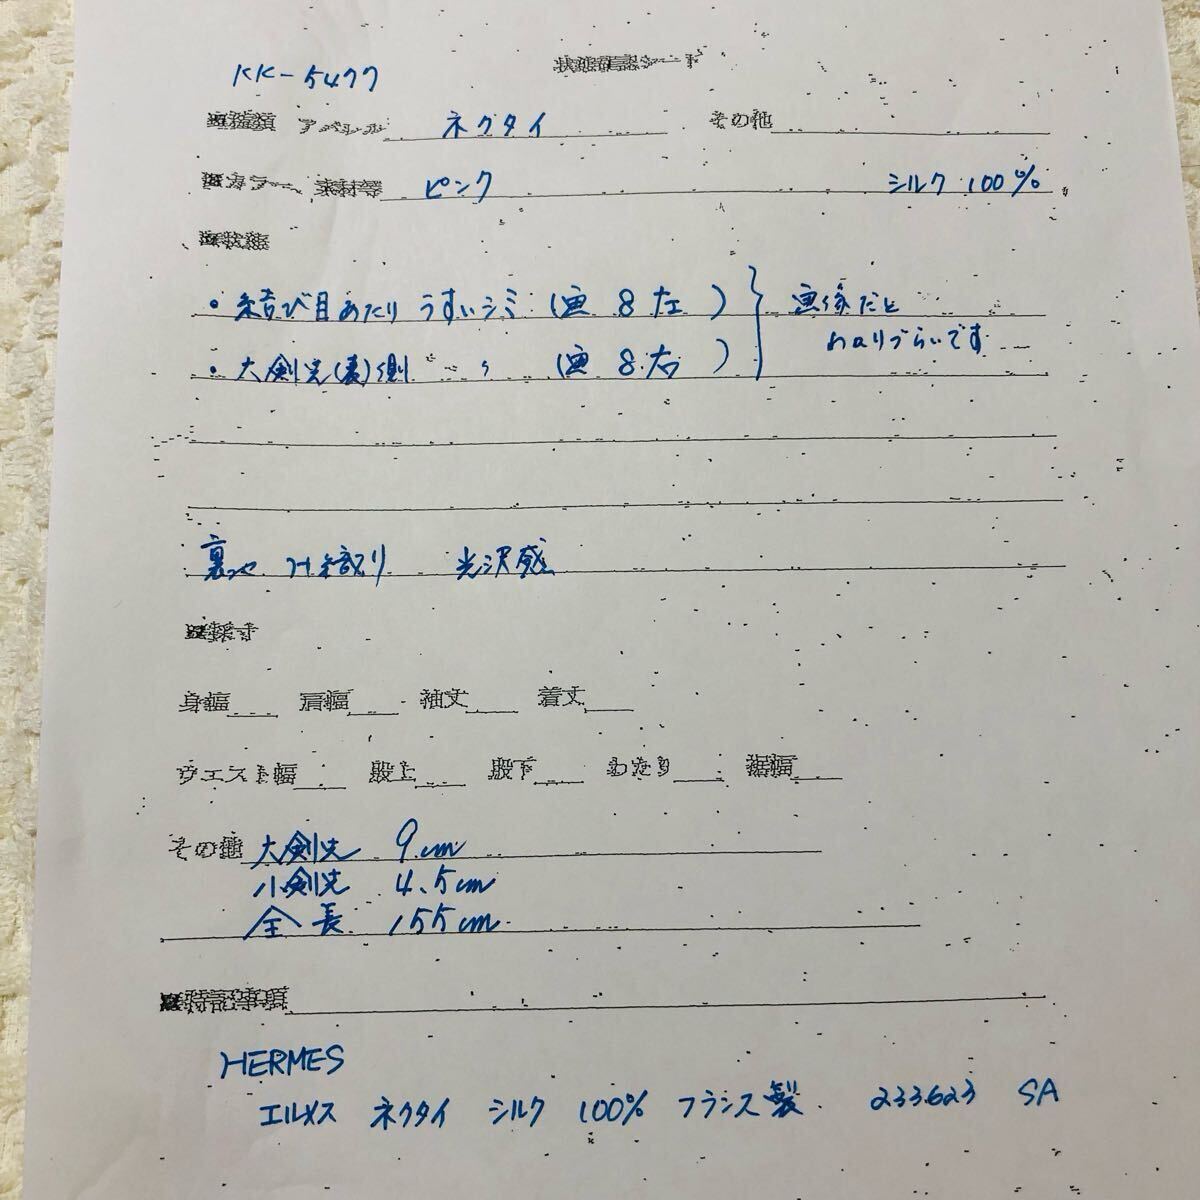 状態確認シート
KK-5477
■種類 アパレル ネクタイ その他
■カラー、素材等 ピンク シルク 100%
■状態
・結び目あたり うすいシミ (画 8 左 ) 画像だと
わかりづらいです
・大剣先(表)側 〃 (画 8 右 )
裏地 H織り 光沢感
■採寸
身幅 肩幅 袖丈 着丈
ウエスト幅 股上 股下 わたり 裾幅
その他 大剣先 9cm
小剣先 4.5cm
全長 155cm
■特記事項
HERMES
エルメス ネクタイ シルク 100% フランス製 233623 SA